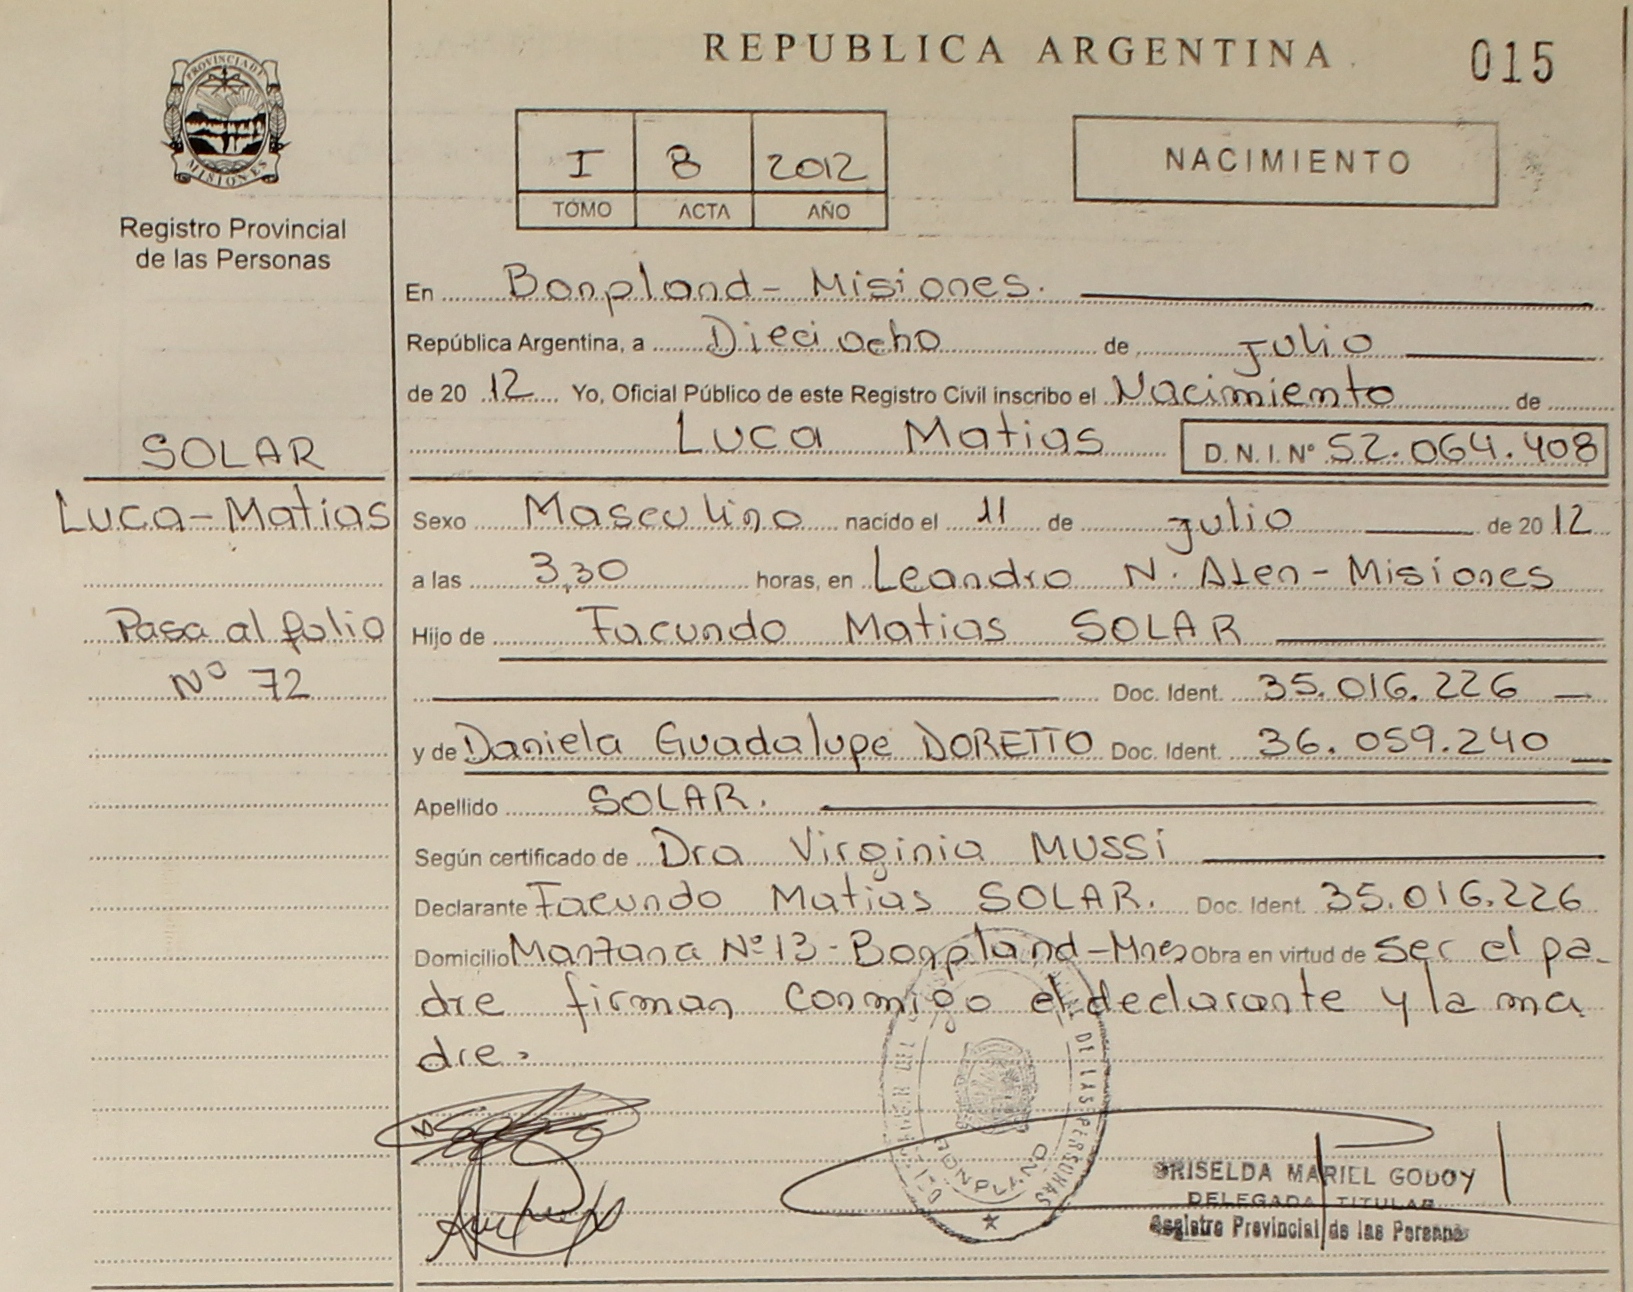 REPUBLICA ARGENTINA
015
PROVINCIA DE
MISIONES
Registro Provincial
de las Personas
I 8 2012
TOMO ACTA AÑO
NACIMIENTO
En Bonpland - Misiones.
República Argentina, a Dieciocho de Julio
de 20 12 Yo, Oficial Público de este Registro Civil inscribo el Nacimiento de
Luca Matias D.N.I. Nº 52.064.408
SOLAR
Luca-Matias
Pasa al folio
Nº 72
Sexo Masculino nacido el 11 de julio de 20 12
a las 3,30 horas, en Leandro N. Alen - Misiones
Hijo de Facundo Matias SOLAR
Doc. Ident. 35.016.226
y de Daniela Guadalupe DORETTO Doc. Ident. 36.059.240
Apellido SOLAR.
Según certificado de Dra Virginia MUSSi
Declarante Facundo Matias SOLAR. Doc. Ident. 35.016.226
Domicilio Manzana Nº 13 - Bonpland - Mnes Obra en virtud de ser el pa-
dre firman conmigo el declarante y la ma
dre.
DE LAS PERSONAS
BONPLAND
GRISELDA MARIEL GODOY
DELEGADA TITULAR
Registro Provincial de las Personas